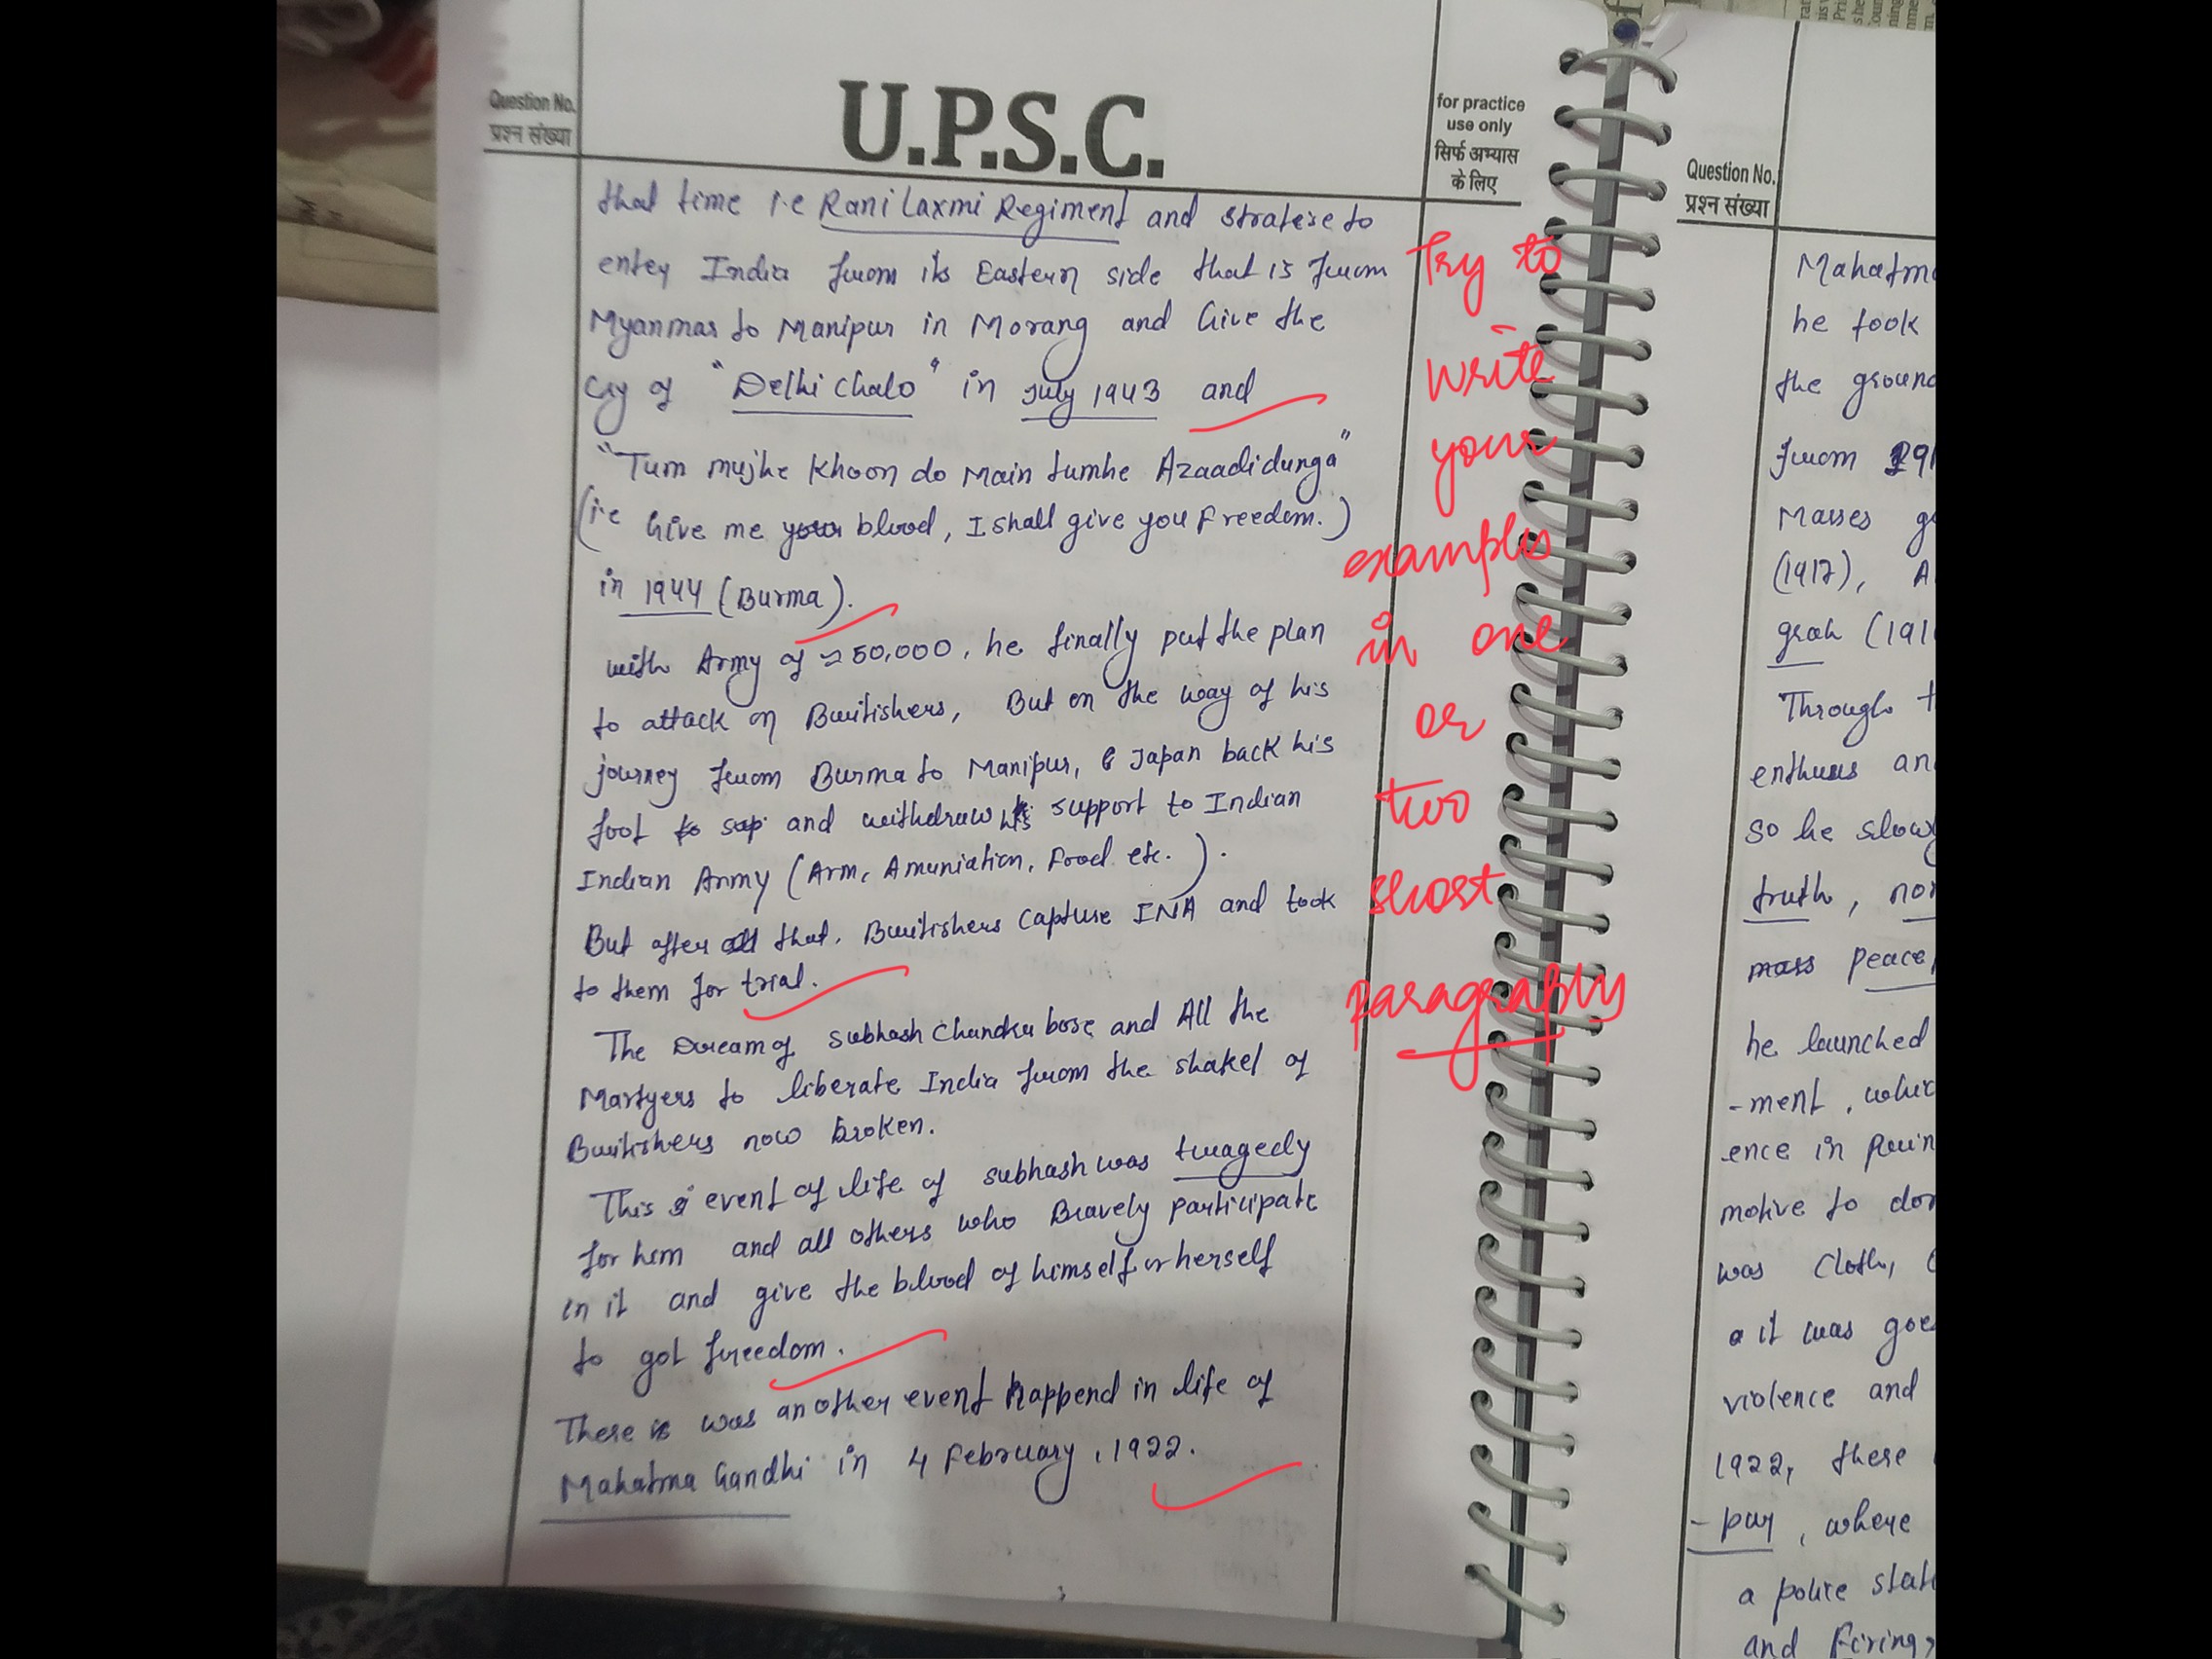 Question No.
प्रश्न संख्या
U.P.S.C.
for practice
use only
सिर्फ अभ्यास
के लिए
that time i.e Rani Laxmi Regiment and to
entey India from its Eastern side that is from
Myanmar to Manipur in Morang and Give the
Cry of "Delhi Chalo" in July 1943 and
"Tum mujhe Khoon do Main tumhe Azaadi dunga"
(i.e Give me your blood, I shall give you Freedom.)
in 1944 (Burma).
with Army of ≈50,000, he finally put the plan
to attack on Buritishers, But on the way of his
journey from Burma to Manipur, Japan back his
foot and withdraw his support to Indian
Indian Army (Arm, Amuniation, Food etc.).
But after all that, Buritishers Capture INA and took
to them for trial.
The Dream of Subhash Chandra bose and All the
Martyers to liberate India from the shakel of
Buritishers now broken.
This event of life of Subhash was tragedy
for him and all others who Bravely participate
in it and give the blood of himself or herself
to got freedom.
There is was another event happend in life of
Mahatma Gandhi in 4 February, 1922.
Try to
write
your
examples
in one
or
two
short
paragraphs
Question No.
प्रश्न संख्या
Mahatm
he took
the ground
from 191
Masses
(1917), A
grah (191
Through
enthuus an
so he slow
truth, non
mass peace,
he launched
-ment, whic
ence in
motive to don
was Cloth,
it was goe
violence and
1922, there
-pur, where
a police stat
and Firing,